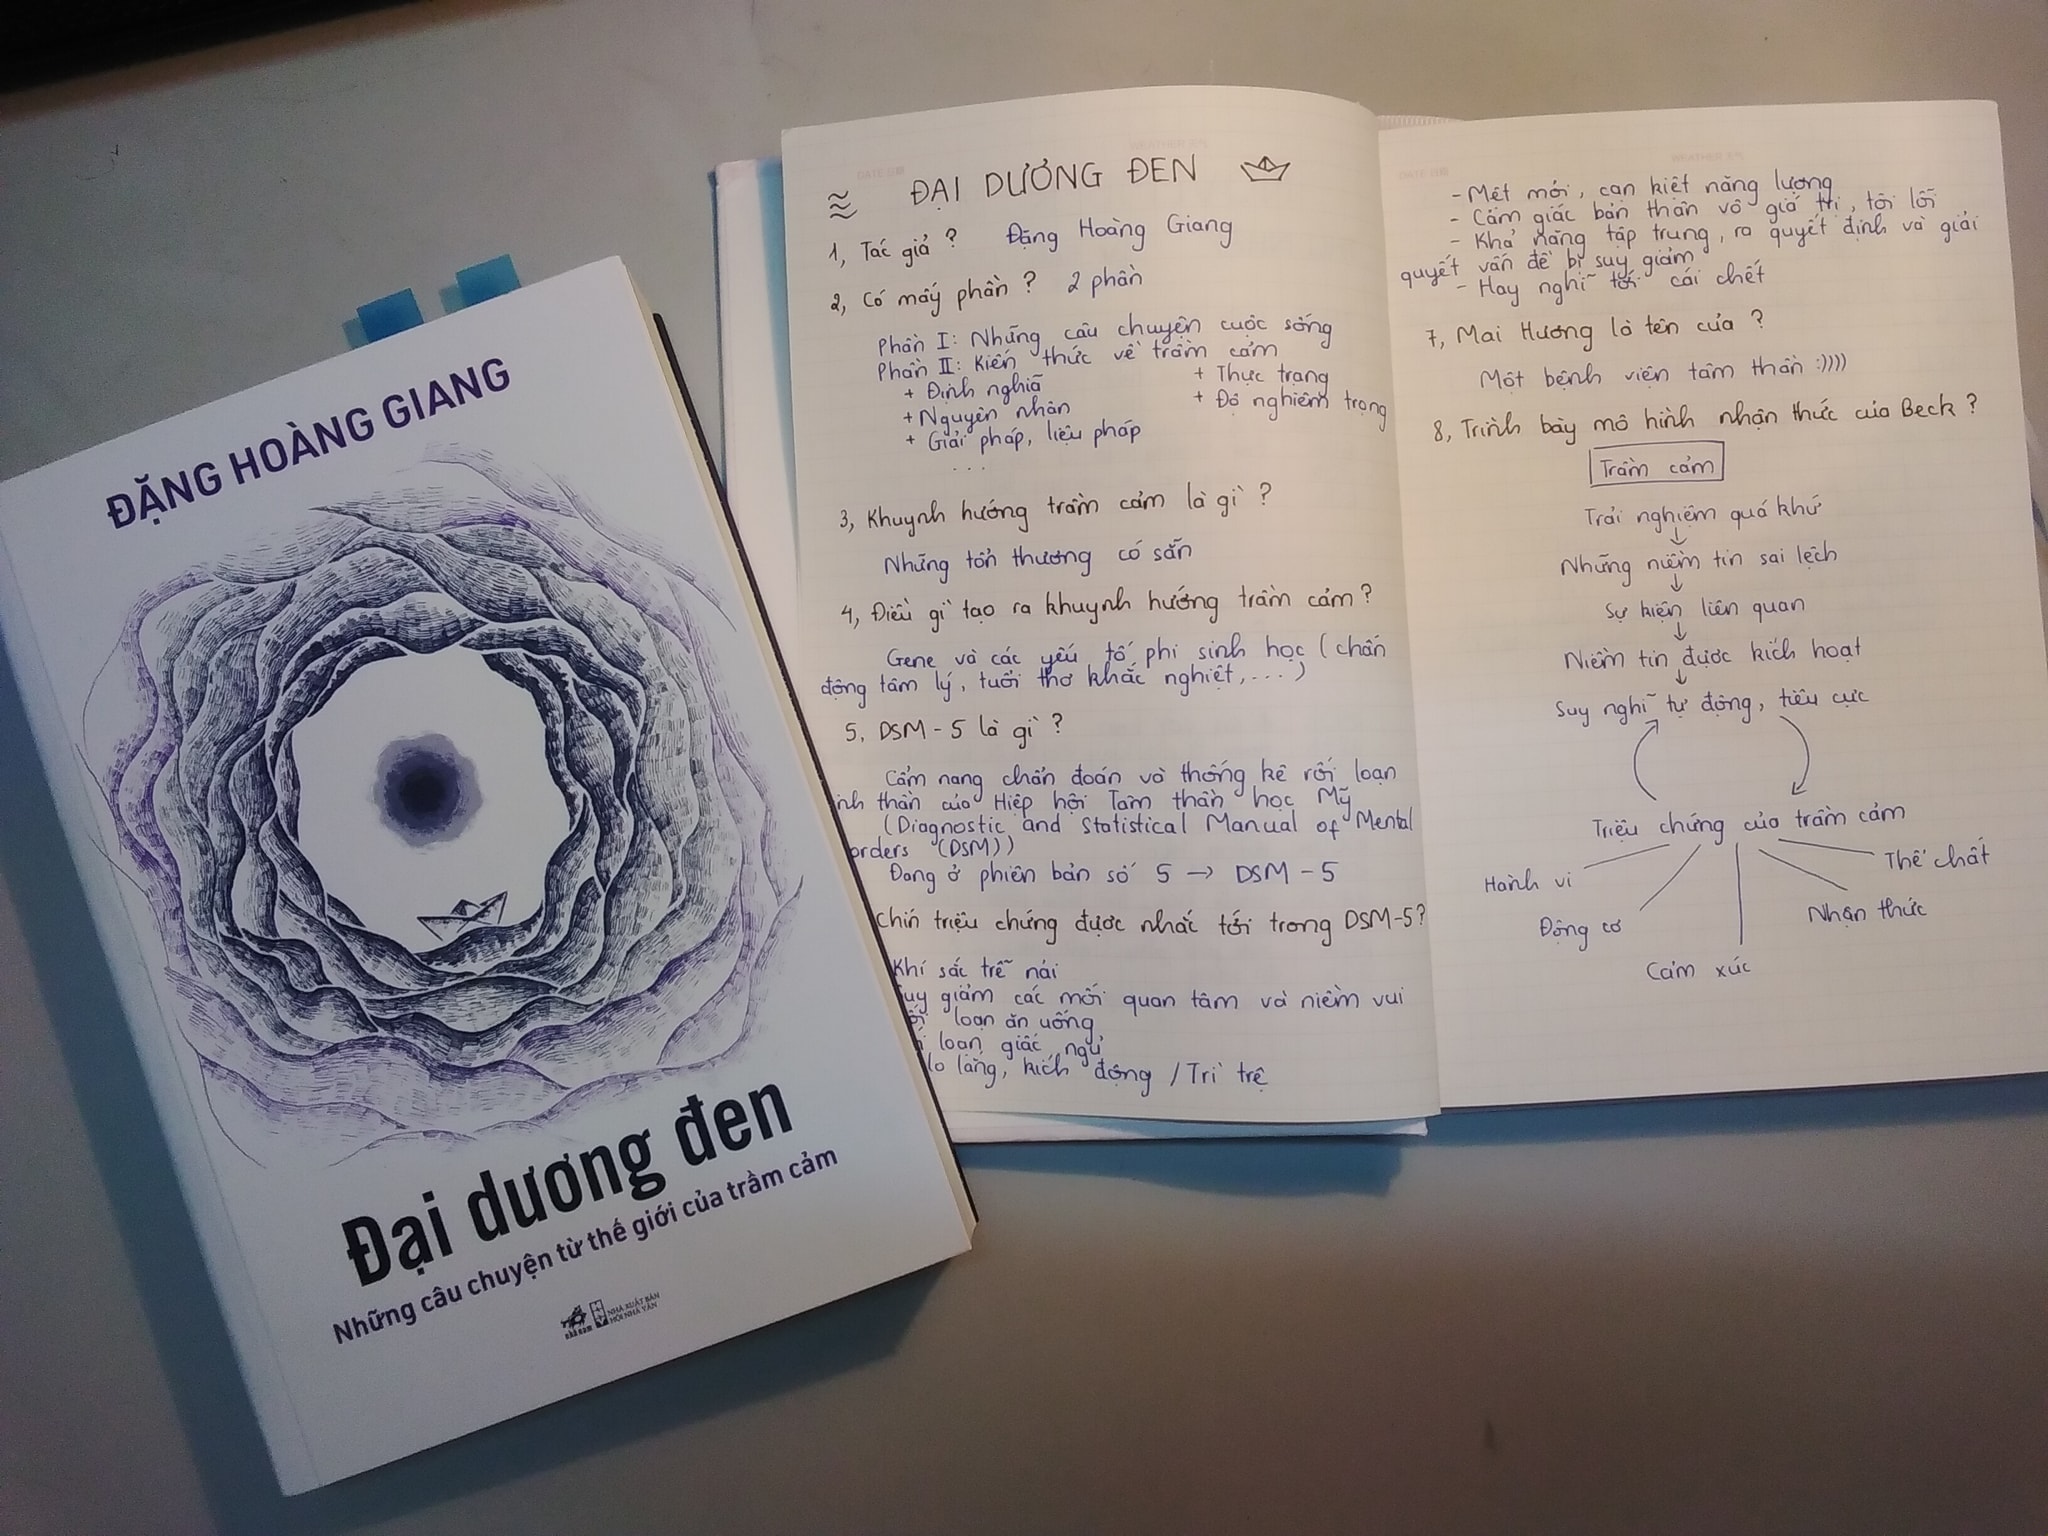 ĐẶNG HOÀNG GIANG
Đại dương đen
Những câu chuyện từ thế giới của trầm cảm
nhã nam
NHÀ XUẤT BẢN
HỘI NHÀ VĂN
ĐẠI DƯƠNG ĐEN
1, Tác giả ? Đặng Hoàng Giang
2, Có mấy phần ? 2 phần
Phần I: Những câu chuyện cuộc sống
Phần II: Kiến thức về trầm cảm
+ Định nghĩa + Thực trạng
+ Nguyên nhân + Độ nghiêm trọng
+ Giải pháp, liệu pháp
...
3, Khuynh hướng trầm cảm là gì ?
Những tổn thương có sẵn
4, Điều gì tạo ra khuynh hướng trầm cảm ?
Gene và các yếu tố phi sinh học (chấn
động tâm lý, tuổi thơ khắc nghiệt, ...)
5. DSM-5 là gì ?
Cẩm nang chẩn đoán và thống kê rối loạn
thần của Hiệp hội Tâm thần học Mỹ
(Diagnostic and Statistical Manual of Mental
orders (DSM))
Đang ở phiên bản số 5 → DSM-5
Chín triệu chứng được nhắc tới trong DSM-5?
Khí sắc trễ nải
uy giảm các mối quan tâm và niềm vui
loạn ăn uống
loạn giấc ngủ
lo lắng, kích động / Trì trệ
DATE WEATHER
- Mệt mỏi, cạn kiệt năng lượng
- Cảm giác bản thân vô giá trị, tội lỗi
- Khả năng tập trung, ra quyết định và giải
quyết vấn đề bị suy giảm
- Hay nghĩ tới cái chết
7, Mai Hương là tên của ?
Một bệnh viện tâm thần :))))
8, Trình bày mô hình nhận thức của Beck ?
Trầm cảm
Trải nghiệm quá khứ
↓
Những niềm tin sai lệch
↓
Sự kiện liên quan
↓
Niềm tin được kích hoạt
↓
Suy nghĩ tự động, tiêu cực
Triệu chứng của trầm cảm
Hành vi
Động cơ
Cảm xúc
Nhận thức
Thể chất